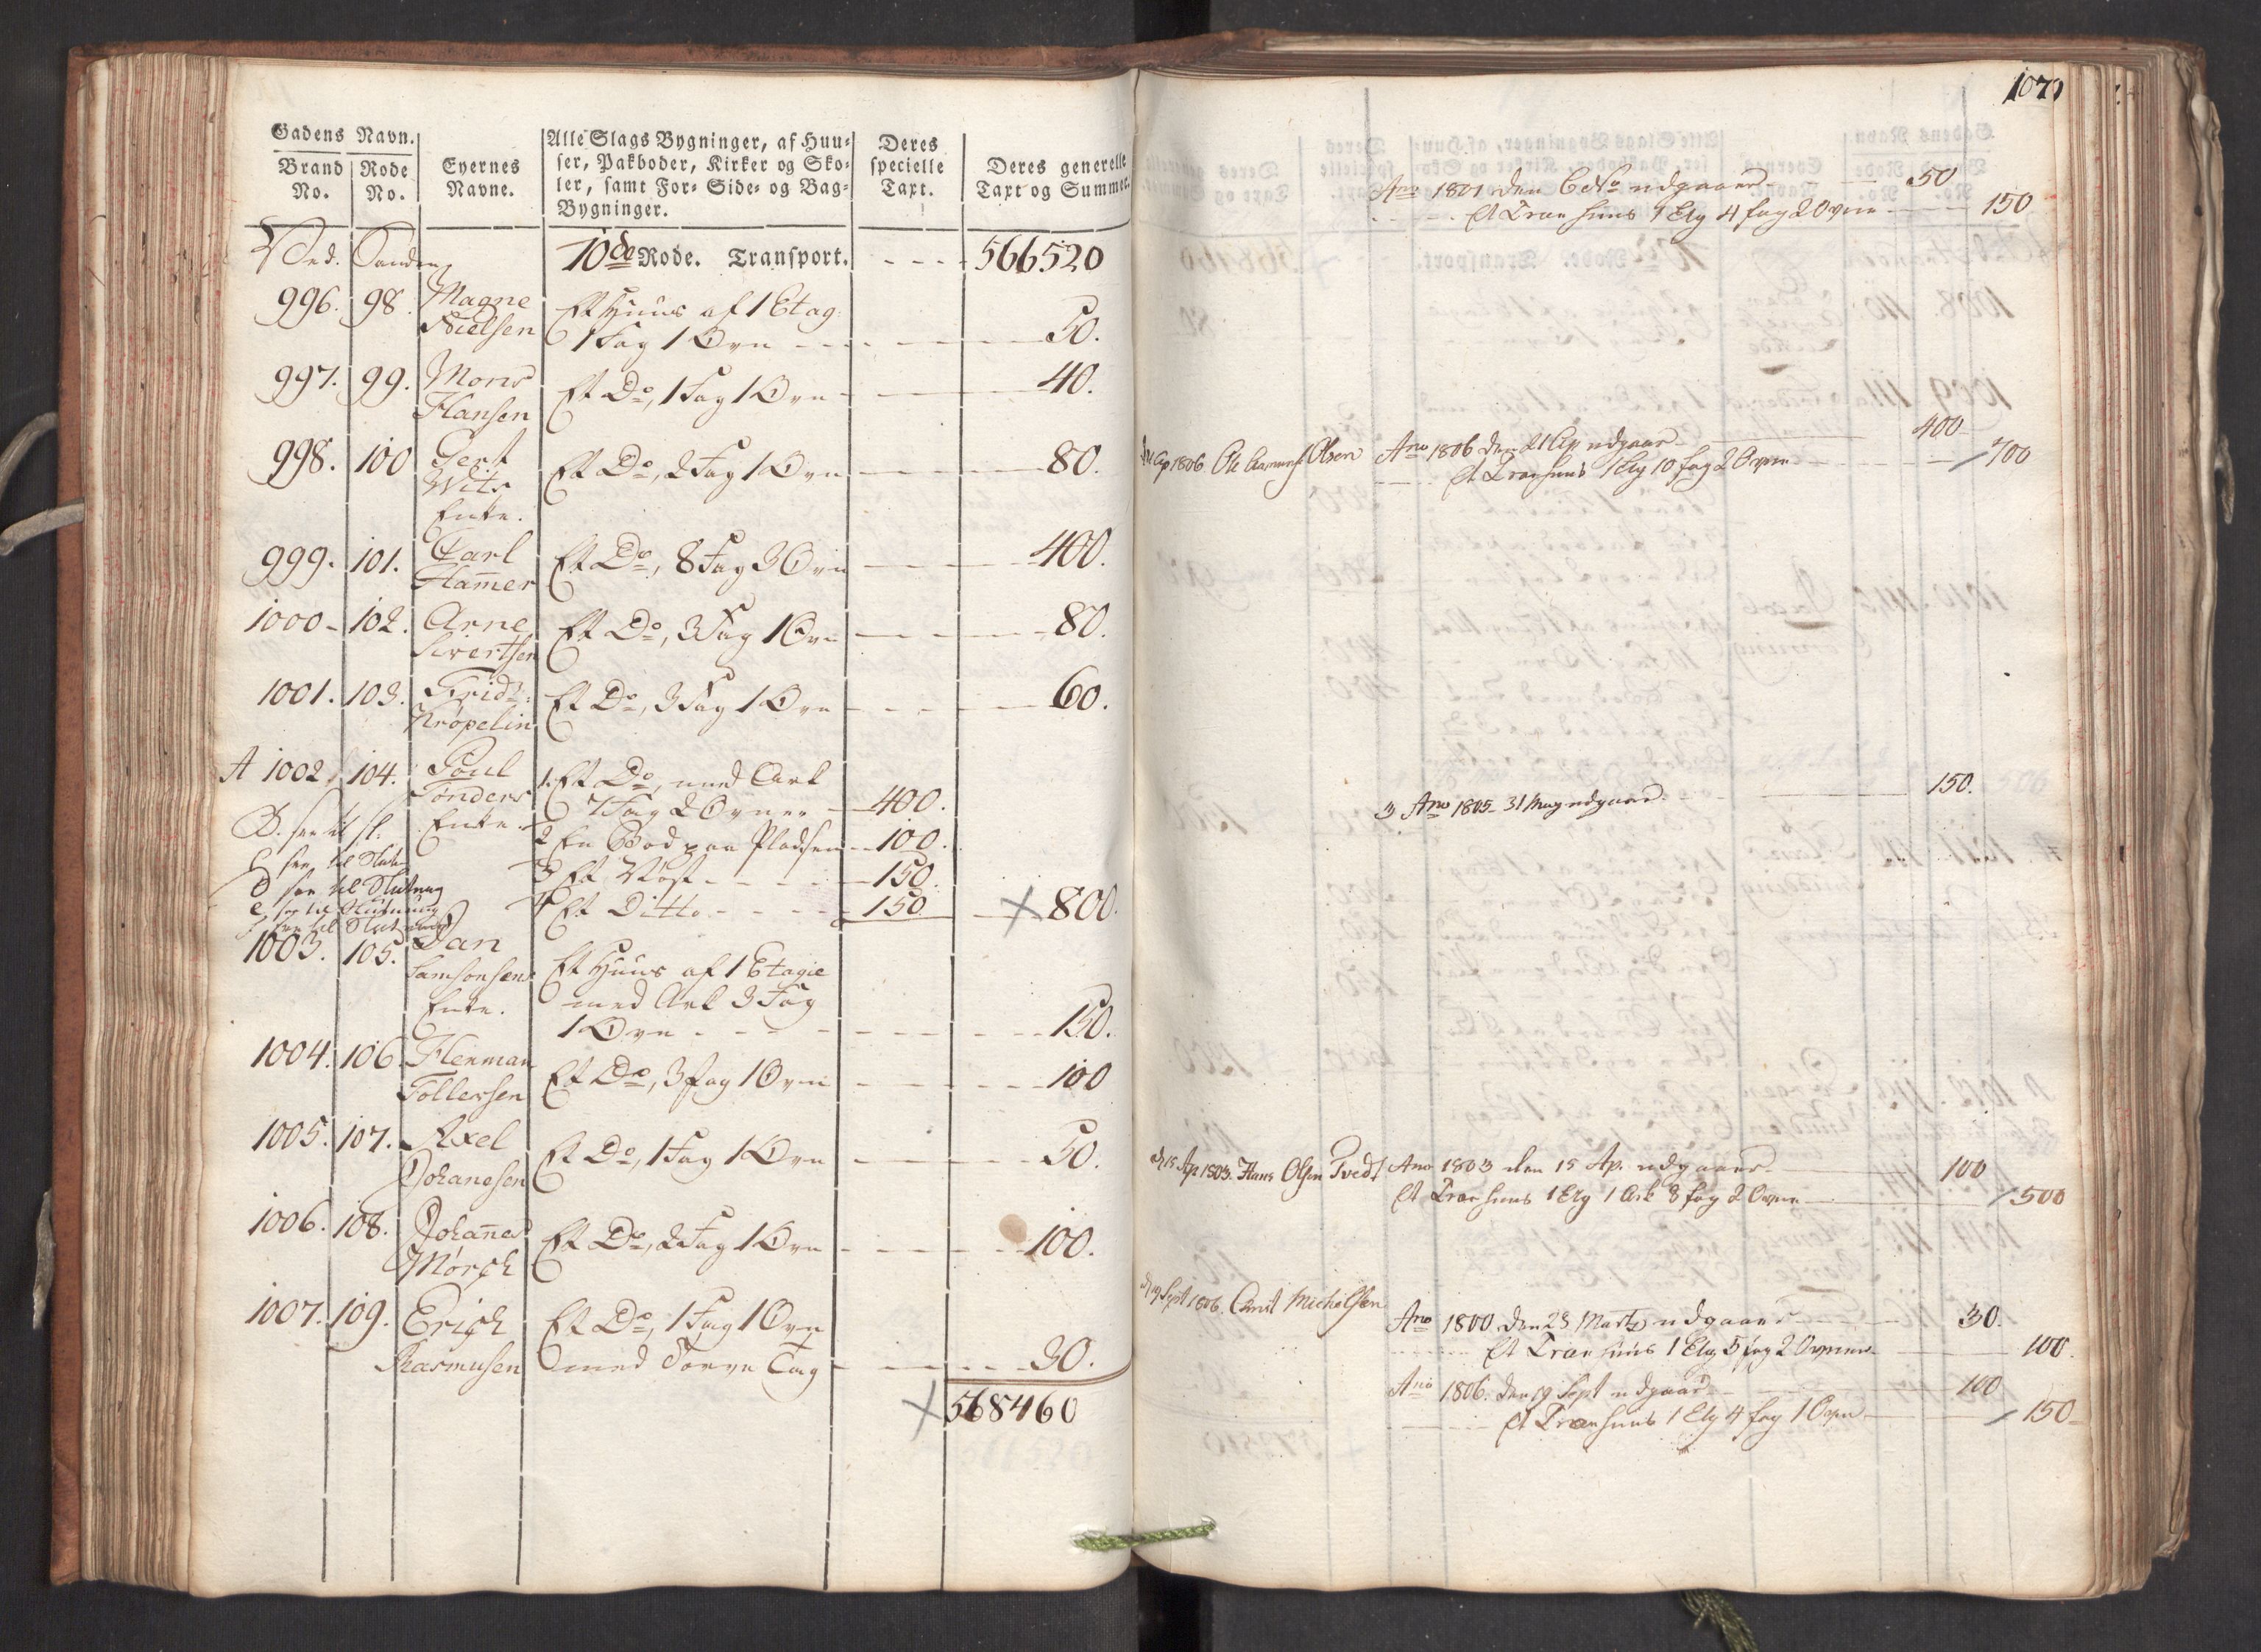 Gadens Navn.
Brand No. | Rode No. | Eyernes Navne. | Alle Slags Bygninger, af Huu-
ser, Pakboder, Kirker og Sko-
ler, samt For- Side- og Bag-
Bygninger. | Deres specielle Taxt. | Deres generelle Taxt og Summer.
Ved Sanden 10de Rode. Transport. - - - 566520
996. 98. Magne Et Huus af 1 Etag.
Nielsen 1 Fag 1 Ovn - - - 50.
997. 99. Mons Et Do, 1 Fag 1 Ovn - - - 40.
Hansen
998. 100 Gert Et Do, 2 Fag 1 Ovn - - - 80.
Wits
Enke.
999. 101. Carl Et Do, 8 Fag 3 Ovn - - - 400.
Hamer
1000 - 102. Arne Et Do, 3 Fag 1 Ovn - - - 80.
Sivertsen
1001. 103. Fridr: Et Do, 3 Fag 1 Ovn - - - 60.
Krøpelin
A 1002. 104. Poul 1. Et Do, med Ark
Tønders 7 Fag 2 Ovner - 400.
B. see til Enke. 2 En Bod paa Pladsen - 100.
C see til Slutn 3 Et Nøst - - - 150.
D see til Slutning 4 Et Ditto - - - 150. × 800.
E see til Slutning
see til Slutning
1003. 105. Jan Et Huus af 1 Etagie
Samsonsens med Ark 3 Fag
Enke. 1 Ovn - - - 150.
1004. 106 Herman Et Do, 3 fag 1 Ovn - - - 100
Tollersen
1005. 107. Axel Et Do, 1 Fag 1 Ovn - - - 50.
Johanesen
1006. 108. Johannes Et Do, 2 Fag 1 Ovn - - - 100.
Mørch
1007. 109. Erich Et Do, 1 Fag 1 Ovn
Rasmusen med Torve Tag - - - 30.
× 568460
1070
Ano 1801 den 6 udgaaer - - - 50
Et Træhuus 1 Etg 4 fag 2 Ovne - - - 150
Ap 1806 Ole Olsen Ano 1806 den 21 Ap udgaaer - 400
Et Træhuus 1 Etg 10 fag 2 Ovne - - - 700
3 Ano 1805 - 31 May udgaaer - - - 150.
d 15 Ap 1803. Hans Olsen Tvedt Ano 1803 den 15 Ap. udgaaer - 100
Et Træhuus 1 Etg 1 Ark 8 fag 2 Ovne - - - 500
d 19 Sept 1806. Michelsen
Ano 1800 den 28 Martz udgaaer - - - 30.
Et Træhuus 1 Etg 5 fag 2 Ovne - - - 100.
Ano 1806. den 19 Sept udgaaer - - - 100
Et Træhuus 1 Etg 4 fag 1 Ovn - - - 150